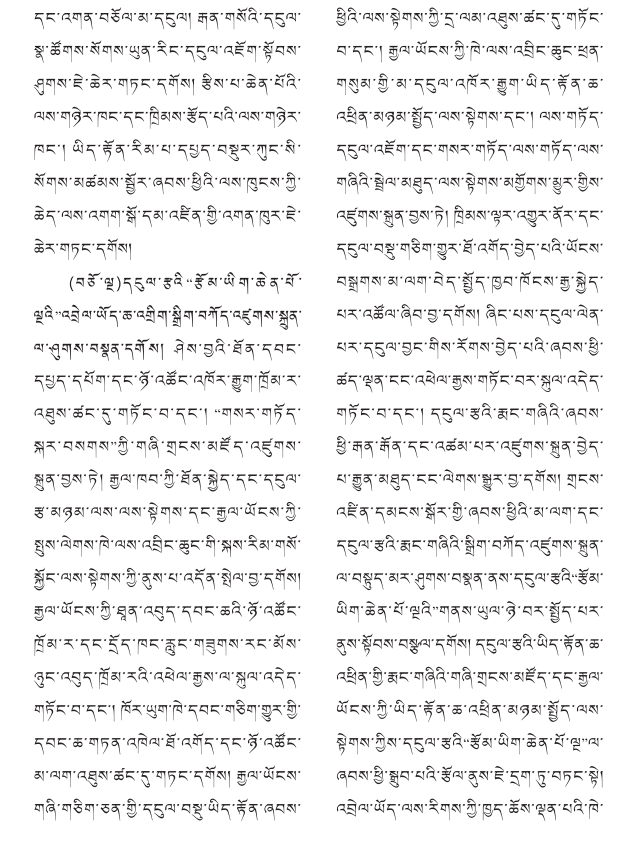 དང་འགན་བཅོལ་མ་དངུལ། རྒན་གསོའི་དངུལ་
སྣ་ཚོགས་སོགས་ཡུན་རིང་དངུལ་འཇོག་སྟོབས་
ཤུགས་ཇེ་ཆེར་གཏང་དགོས། རྩིས་པ་ཆེན་པོའི་
ལས་གཉེར་ཁང་དང་ཁྲིམས་རྩོད་པའི་ལས་གཉེར་
ཁང་། ཡིད་རྟོན་རིམ་པ་དཔྱད་བསྡུར་ཀུང་སི་
སོགས་མཚམས་སྦྱོར་ཞབས་ཕྱིའི་ལས་ཁུངས་ཀྱི་
ཆེད་ལས་འགག་སྒོ་དམ་འཛིན་གྱི་འགན་ཁུར་ཇེ་
ཆེར་གཏང་དགོས།
(བཅོ་ལྔ)དངུལ་རྩའི་“རྩོམ་ཡི་ག་ཆེན་པོ་
ལྔའི”འབྲེལ་ཡོད་ཆ་འགྲིག་སྒྲིག་བཀོད་འཛུགས་སྐྲུན་
ལ་ཤུགས་བསྣན་དགོས། ཤེས་བྱའི་ཐོན་དབང་
དཔྱད་དཔོག་དང་ཉོ་འཚོང་འཁོར་རྒྱུག་ཁྲོམ་ར་
འཐུས་ཚང་དུ་གཏོང་བ་དང་། “གསར་གཏོད་
སྐར་བསགས”ཀྱི་གཞི་གྲངས་མཛོད་འཛུགས་
སྐྲུན་བྱས་ཏེ། རྒྱལ་ཁབ་ཀྱི་ཐོན་སྐྱེད་དང་དངུལ་
རྩ་མཉམ་ལས་ལས་སྟེགས་དང་རྒྱལ་ཡོངས་ཀྱི་
སྤུས་ལེགས་ཁེ་ལས་འབྲིང་ཆུང་གི་སྐས་རིམ་གསོ་
སྐྱོང་ལས་སྟེགས་ཀྱི་ནུས་པ་འདོན་སྤེལ་བྱ་དགོས།
རྒྱལ་ཡོངས་ཀྱི་ཐྲན་འབུད་དབང་ཆའི་ཉོ་འཚོང་
ཁྲོམ་ར་དང་དྲོད་ཁང་རླུང་གཟུགས་རང་མོས་
ཉུང་འབུད་ཁྲོམ་རའི་འཕེལ་རྒྱས་ལ་སྐུལ་འདེད་
གཏོང་བ་དང་། ཁོར་ཡུག་ཁེ་དབང་གཅིག་གྱུར་གྱི་
དབང་ཆ་གཏན་འཁེལ་ཐོ་འགོད་དང་ཉོ་འཚོང་
མ་ལག་འཐུས་ཚང་དུ་གཏང་དགོས། རྒྱལ་ཡོངས་
གཞི་གཅིག་ཅན་གྱི་དངུལ་བསྡུ་ཡིད་རྟོན་ཞབས་
ཕྱིའི་ལས་སྟེགས་ཀྱི་དྲ་ལམ་འཐུས་ཚང་དུ་གཏོང་
བ་དང་། རྒྱལ་ཡོངས་ཀྱི་ཁེ་ལས་འབྲིང་ཆུང་ཕྲན་
གསུམ་གྱི་མ་དངུལ་འཁོར་རྒྱུག་ཡིད་རྟོན་ཆ་
འཕྲིན་མཉམ་སྤྱོད་ལས་སྟེགས་དང་། ལས་གཏོད་
དངུལ་འཇོག་དང་གསར་གཏོད་ལས་གཏོད་ལས་
གཞིའི་སྦྲེལ་མཐུད་ལས་སྟེགས་མགྱོགས་མྱུར་གྱིས་
འཛུགས་སྐྲུན་བྱས་ཏེ། ཁྲིམས་ལྟར་འགྱུར་ནོར་དང་
དངུལ་བསྡུ་གཅིག་གྱུར་ཐོ་འགོད་བྱེད་པའི་ཡོངས་
བསྒྲགས་མ་ལག་བེད་སྤྱོད་ཁྱབ་ཁོངས་རྒྱ་སྐྱེད་
པར་འཚོལ་ཞིབ་བྱ་དགོས། ཞིང་པས་དངུལ་ལེན་
པར་དངུལ་བྱང་གིས་རོགས་བྱེད་པའི་ཞབས་ཕྱི་
ཚད་ལྡན་ངང་འཕེལ་རྒྱས་གཏོང་བར་སྐུལ་འདེད་
གཏོང་བ་དང་། དངུལ་རྩའི་རྨང་གཞིའི་ཞབས་
ཕྱི་རྒན་རྒོན་དང་འཚམ་པར་འཛུགས་སྐྲུན་བྱེད་
པ་རྒྱུན་མཐུད་ངང་ལེགས་སྒྱུར་བྱ་དགོས། གྲངས་
འཛིན་དམངས་སྒོར་གྱི་ཞབས་ཕྱིའི་མ་ལག་དང་
དངུལ་རྩའི་རྨང་གཞིའི་སྒྲིག་བཀོད་འཛུགས་སྐྲུན་
ལ་བསྟུད་མར་ཤུགས་བསྣན་ནས་དངུལ་རྩའི“རྩོམ་
ཡིག་ཆེན་པོ་ལྔའི”གནས་ཡུལ་ཉེ་བར་སྤྱོད་པར་
ནུས་སྟོབས་བསྩལ་དགོས། དངུལ་རྩའི་ཡིད་རྟོན་ཆ་
འཕྲིན་གྱི་རྨང་གཞིའི་གཞི་གྲངས་མཛོད་དང་རྒྱལ་
ཡོངས་ཀྱི་ཡིད་རྟོན་ཆ་འཕྲིན་མཉམ་སྤྱོད་ལས་
སྟེགས་ཀྱིས་དངུལ་རྩའི“རྩོམ་ཡིག་ཆེན་པོ་ལྔ”ལ་
ཞབས་ཕྱི་སྒྲུབ་པའི་རྩོལ་ནུས་ཇེ་དྲག་ཏུ་བཏང་སྟེ།
འབྲེལ་ཡོད་ལས་རིགས་ཀྱི་ཁྱད་ཆོས་ལྡན་པའི་ཁེ་